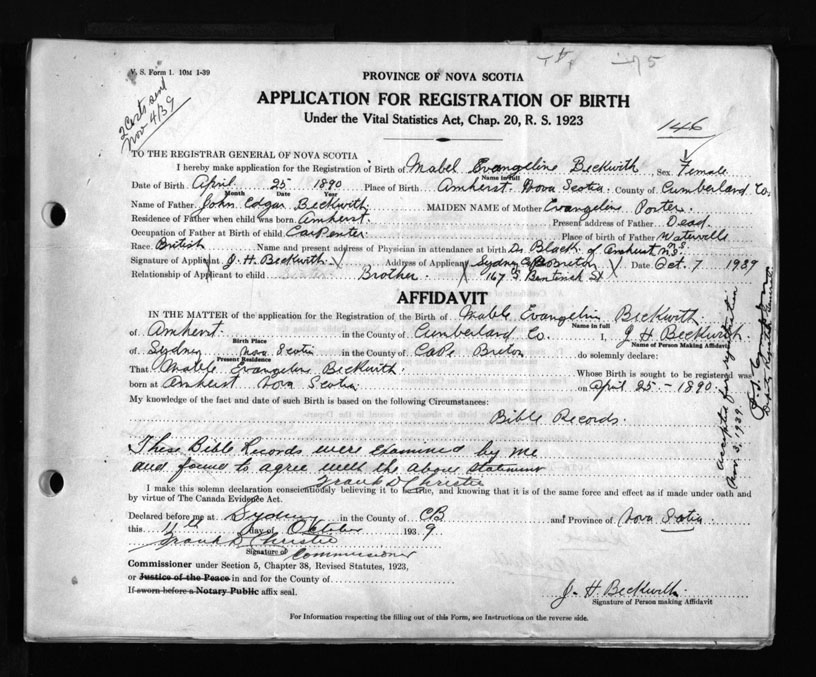 V. S. Form 1. 10M 1-39
2 Certs send
Nov 4/39
PROVINCE OF NOVA SCOTIA
APPLICATION FOR REGISTRATION OF BIRTH
Under the Vital Statistics Act, Chap. 20, R. S. 1923
146
TO THE REGISTRAR GENERAL OF NOVA SCOTIA
I hereby make application for the Registration of Birth of Mabel Evangeline Beckwith, Sex Female
Name in full
Date of Birth April 25 1890 Place of Birth Amherst Nova Scotia County of Cumberland Co.
Month Date Year
Name of Father John Edgar Beckwith MAIDEN NAME of Mother Evangeline Porter.
Residence of Father when child was born Amherst. Present address of Father Dead.
Occupation of Father at Birth of child Carpenter Place of birth of Father Waterville N.S.
Race British Name and present address of Physician in attendance at birth Dr Black of Amherst N.S.
Signature of Applicant J. H. Beckwith Address of Applicant Sydney Cape Breton Date Oct. 7 1939
Relationship of Applicant to child Brother. 167 S. Bentinck St
AFFIDAVIT
IN THE MATTER of the application for the Registration of the Birth of Mable Evangeline Beckwith
Name in full
of Amherst in the County of Cumberland Co. I, J H Beckwith
Birth Place Name of Person Making Affidavit
of Sydney Nova Scotia in the County of Cape Breton do solemnly declare:
Present Residence
That Mable Evangeline Beckwith. Whose Birth is sought to be registered was
born at Amherst Nova Scotia on April 25 - 1890.
My knowledge of the fact and date of such Birth is based on the following Circumstances:
Bible Records.
These Bible Records were examined by me
and found to agree with the above statement
Frank D Christie
I make this solemn declaration conscientiously believing it to be true, and knowing that it is of the same force and effect as if made under oath and
by virtue of The Canada Evidence Act.
Declared before me at Sydney in the County of CB and Province of Nova Scotia
this 11th day of October 1939
Frank D Christie
Signature of Commissioner
Commissioner under Section 5, Chapter 38, Revised Statutes, 1923,
or Justice of the Peace in and for the County of
If sworn before a Notary Public affix seal.
J. H. Beckwith
Signature of Person making Affidavit
For Information respecting the filling out of this Form, see Instructions on the reverse side.
Accepted for registration
Nov. 3, 1939.